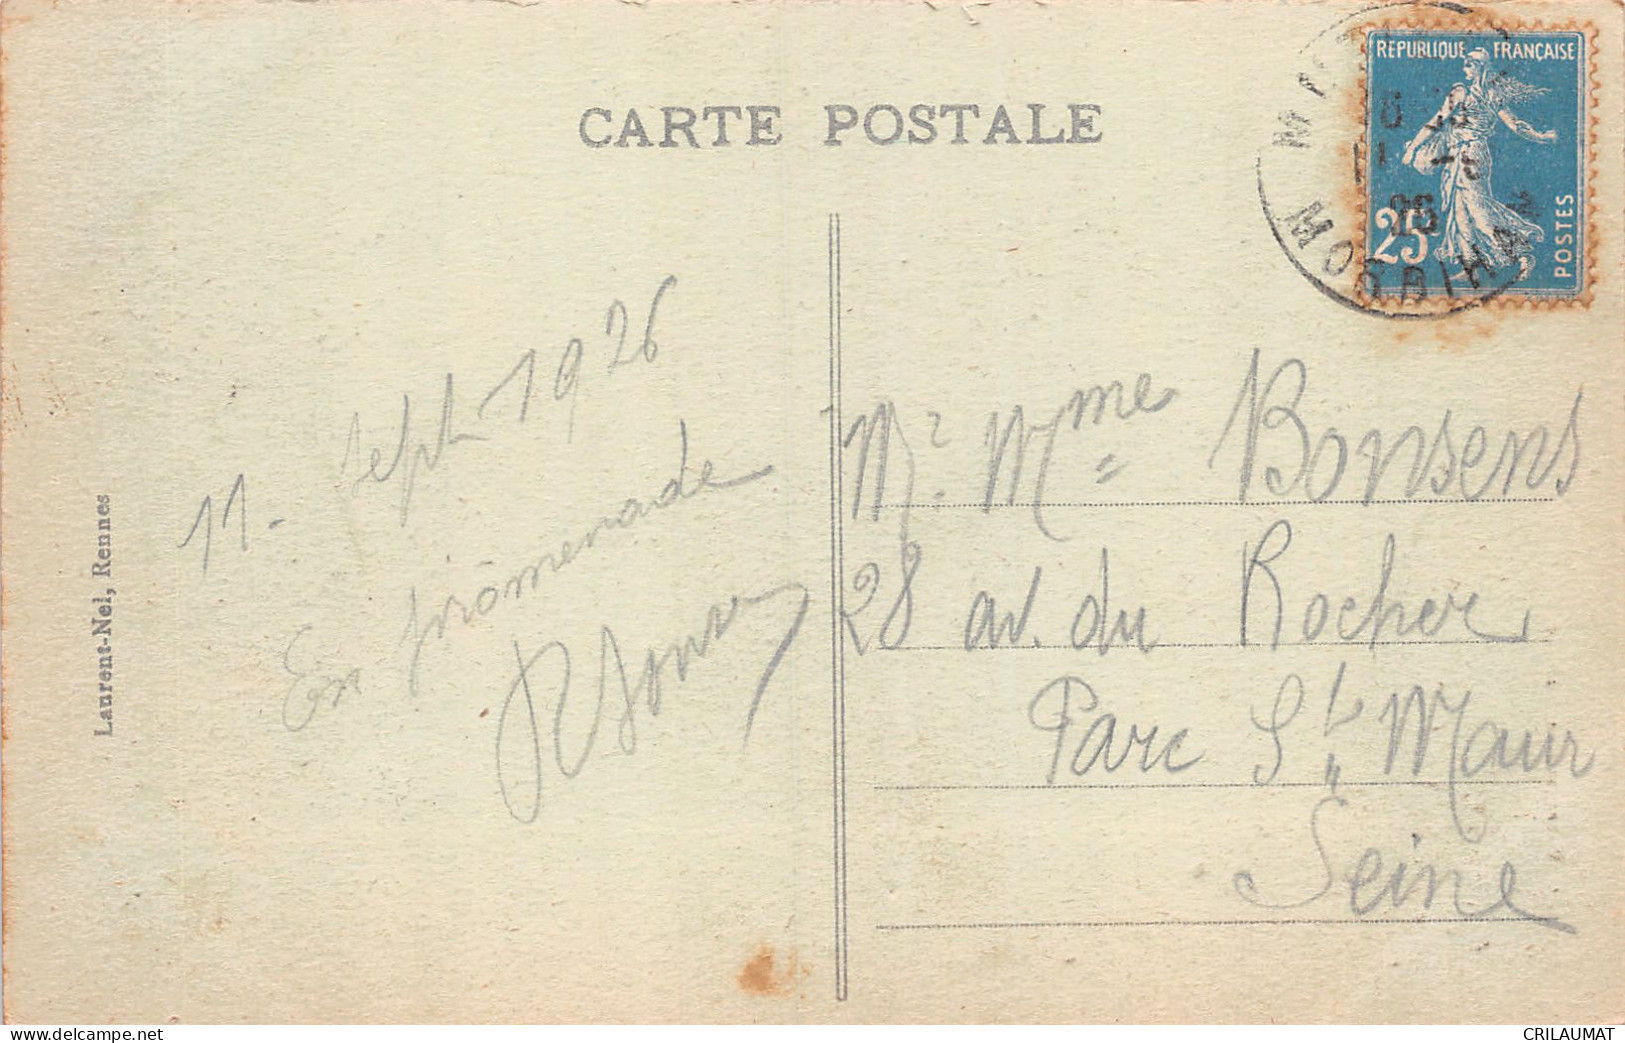 CARTE POSTALE
RÉPUBLIQUE FRANÇAISE
25
POSTES
26
MORBIHAN
11. Sept. 1926
En promenade
Laurent-Nel, Rennes
Mr. Mme Bonsens
28 av. du Rocher
Parc St Maur
Seine
delcampe.net
CRILAUMAT